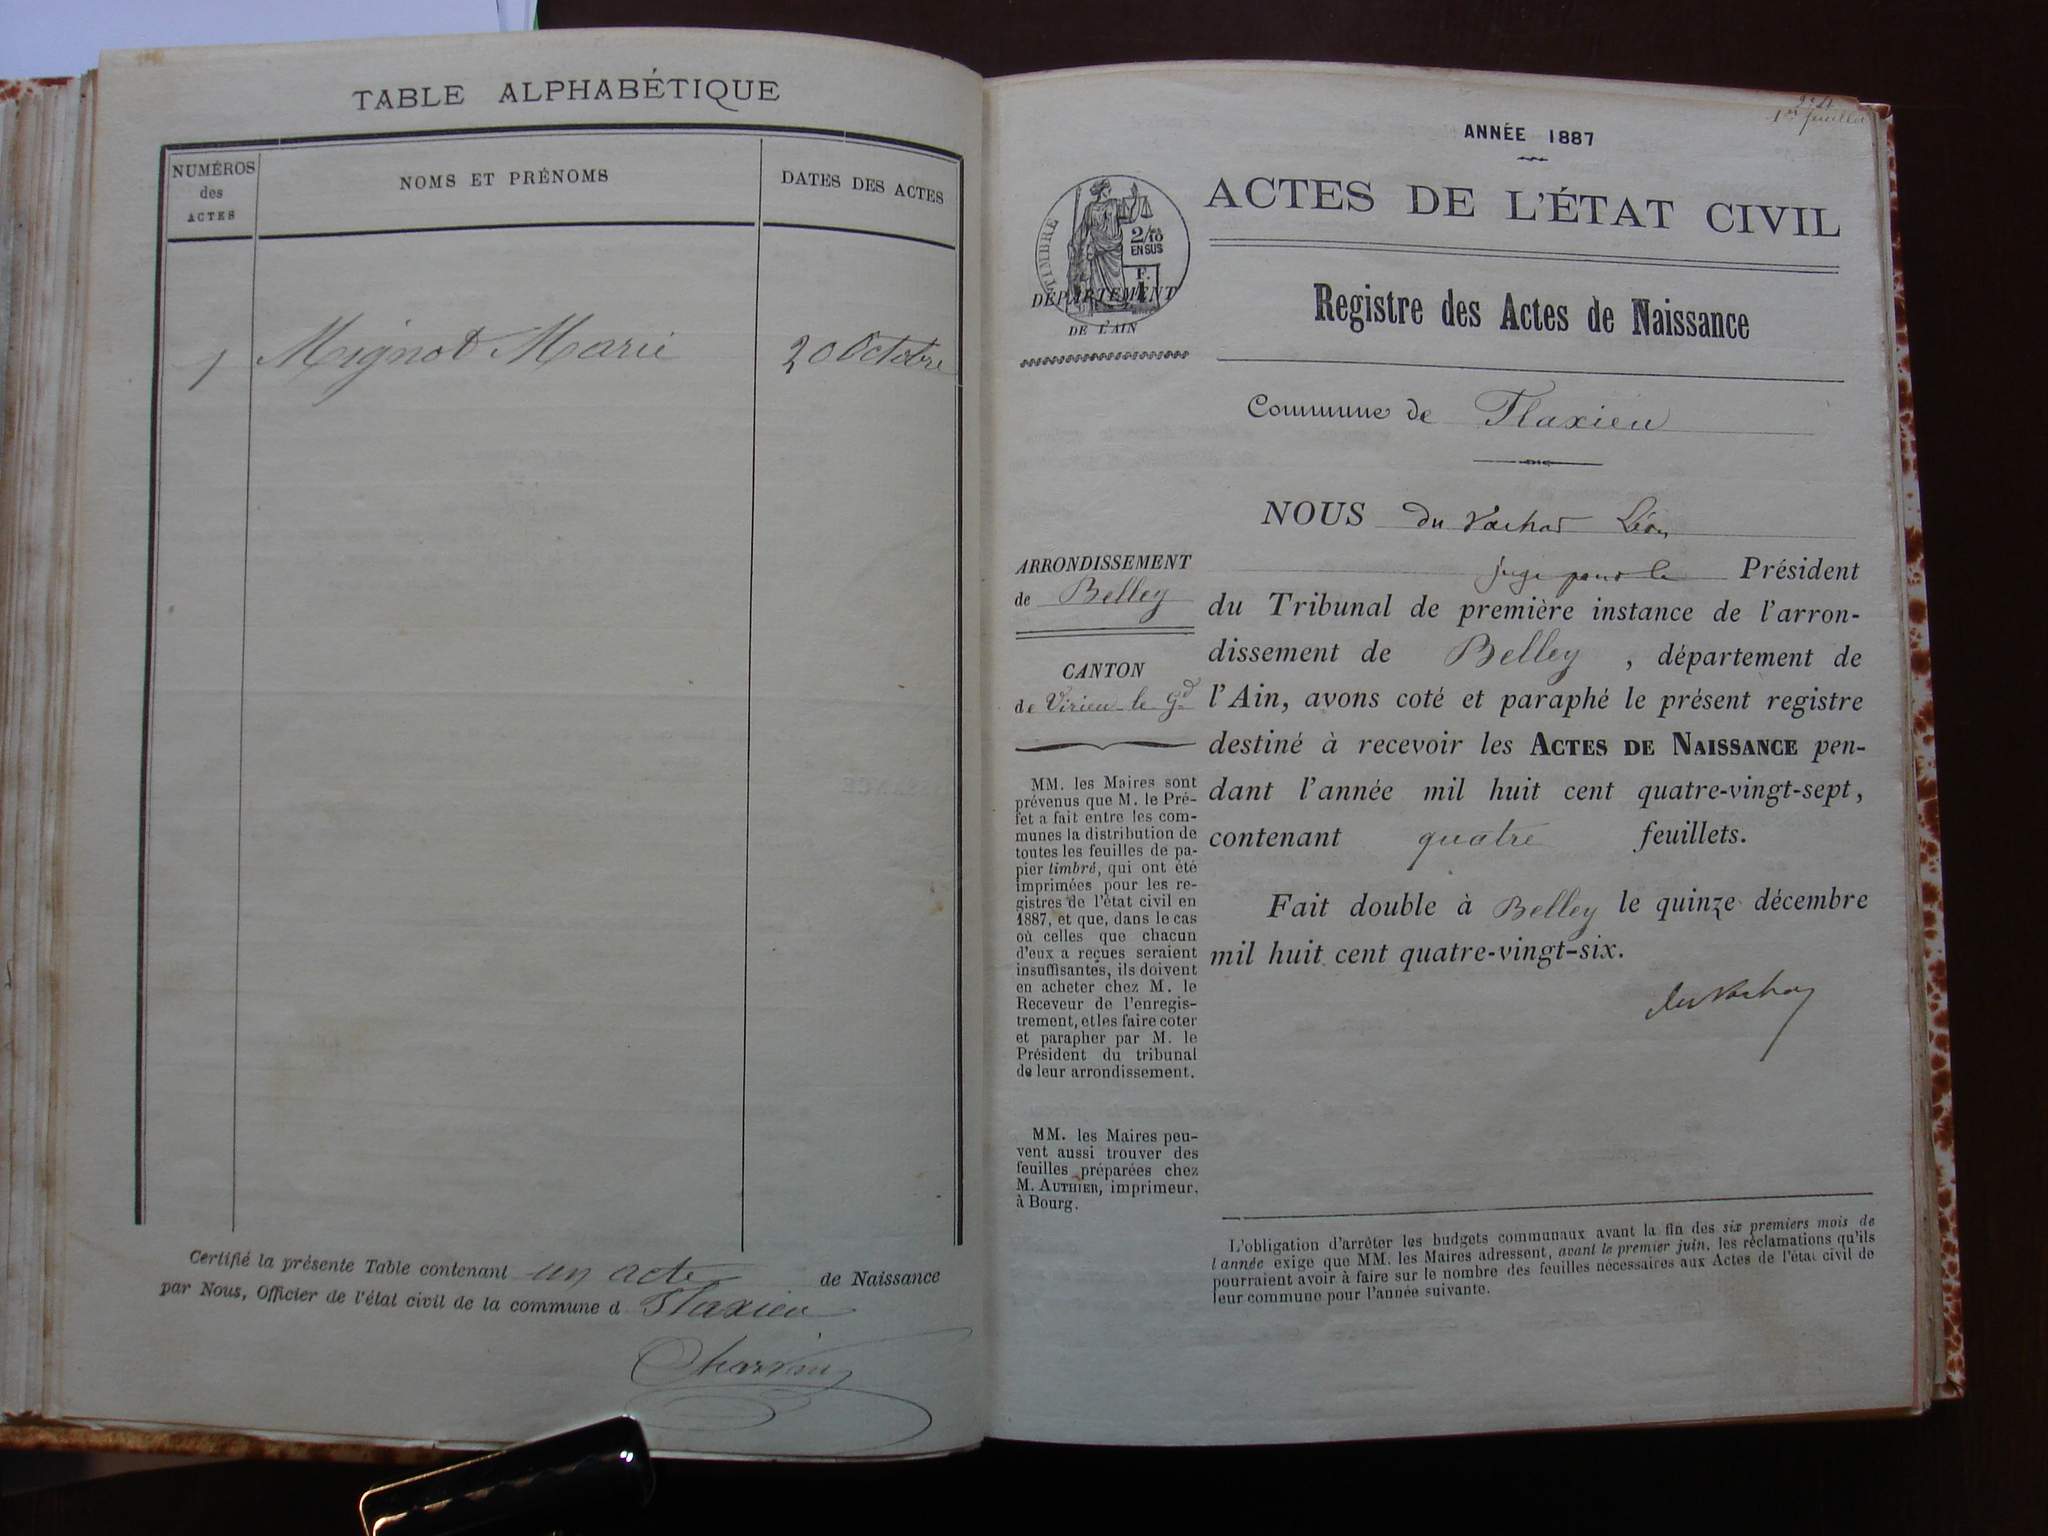 TABLE ALPHABÉTIQUE
NUMÉROS
des
ACTES
NOMS ET PRÉNOMS
DATES DES ACTES
1 Mignot Marie 20 Octobre
Certifié la présente Table contenant un acte de Naissance
par Nous, Officier de l'état civil de la commune d Flaxieu
Charvin
1er feuillet
ANNÉE 1887
ACTES DE L'ÉTAT CIVIL
TIMBRE
2/10
EN SUS
F.
1
DÉPARTEMENT
DE L'AIN
Registre des Actes de Naissance
Commune de Flaxieu
NOUS du Vachat Léon
juge pour le Président
du Tribunal de première instance de l'arron-
dissement de Belley, département de
l'Ain, avons coté et paraphé le présent registre
destiné à recevoir les ACTES DE NAISSANCE pen-
dant l'année mil huit cent quatre-vingt-sept,
contenant quatre feuillets.
Fait double à Belley le quinze décembre
mil huit cent quatre-vingt-six.
du Vachat
ARRONDISSEMENT
de Belley
CANTON
de Virieu le Gd
MM. les Maires sont
prévenus que M. le Pré-
fet a fait entre les com-
munes la distribution de
toutes les feuilles de pa-
pier timbré, qui ont été
imprimées pour les re-
gistres de l'état civil en
1887, et que, dans le cas
où celles que chacun
d'eux a reçues seraient
insuffisantes, ils doivent
en acheter chez M. le
Receveur de l'enregis-
trement, et les faire coter
et parapher par M. le
Président du tribunal
de leur arrondissement.
MM. les Maires peu-
vent aussi trouver des
feuilles préparées chez
M. AUTHIER, imprimeur,
à Bourg.
L'obligation d'arrêter les budgets communaux avant la fin des six premiers mois de
l'année exige que MM. les Maires adressent, avant le premier juin, les réclamations qu'ils
pourraient avoir à faire sur le nombre des feuilles nécessaires aux Actes de l'état civil de
leur commune pour l'année suivante.